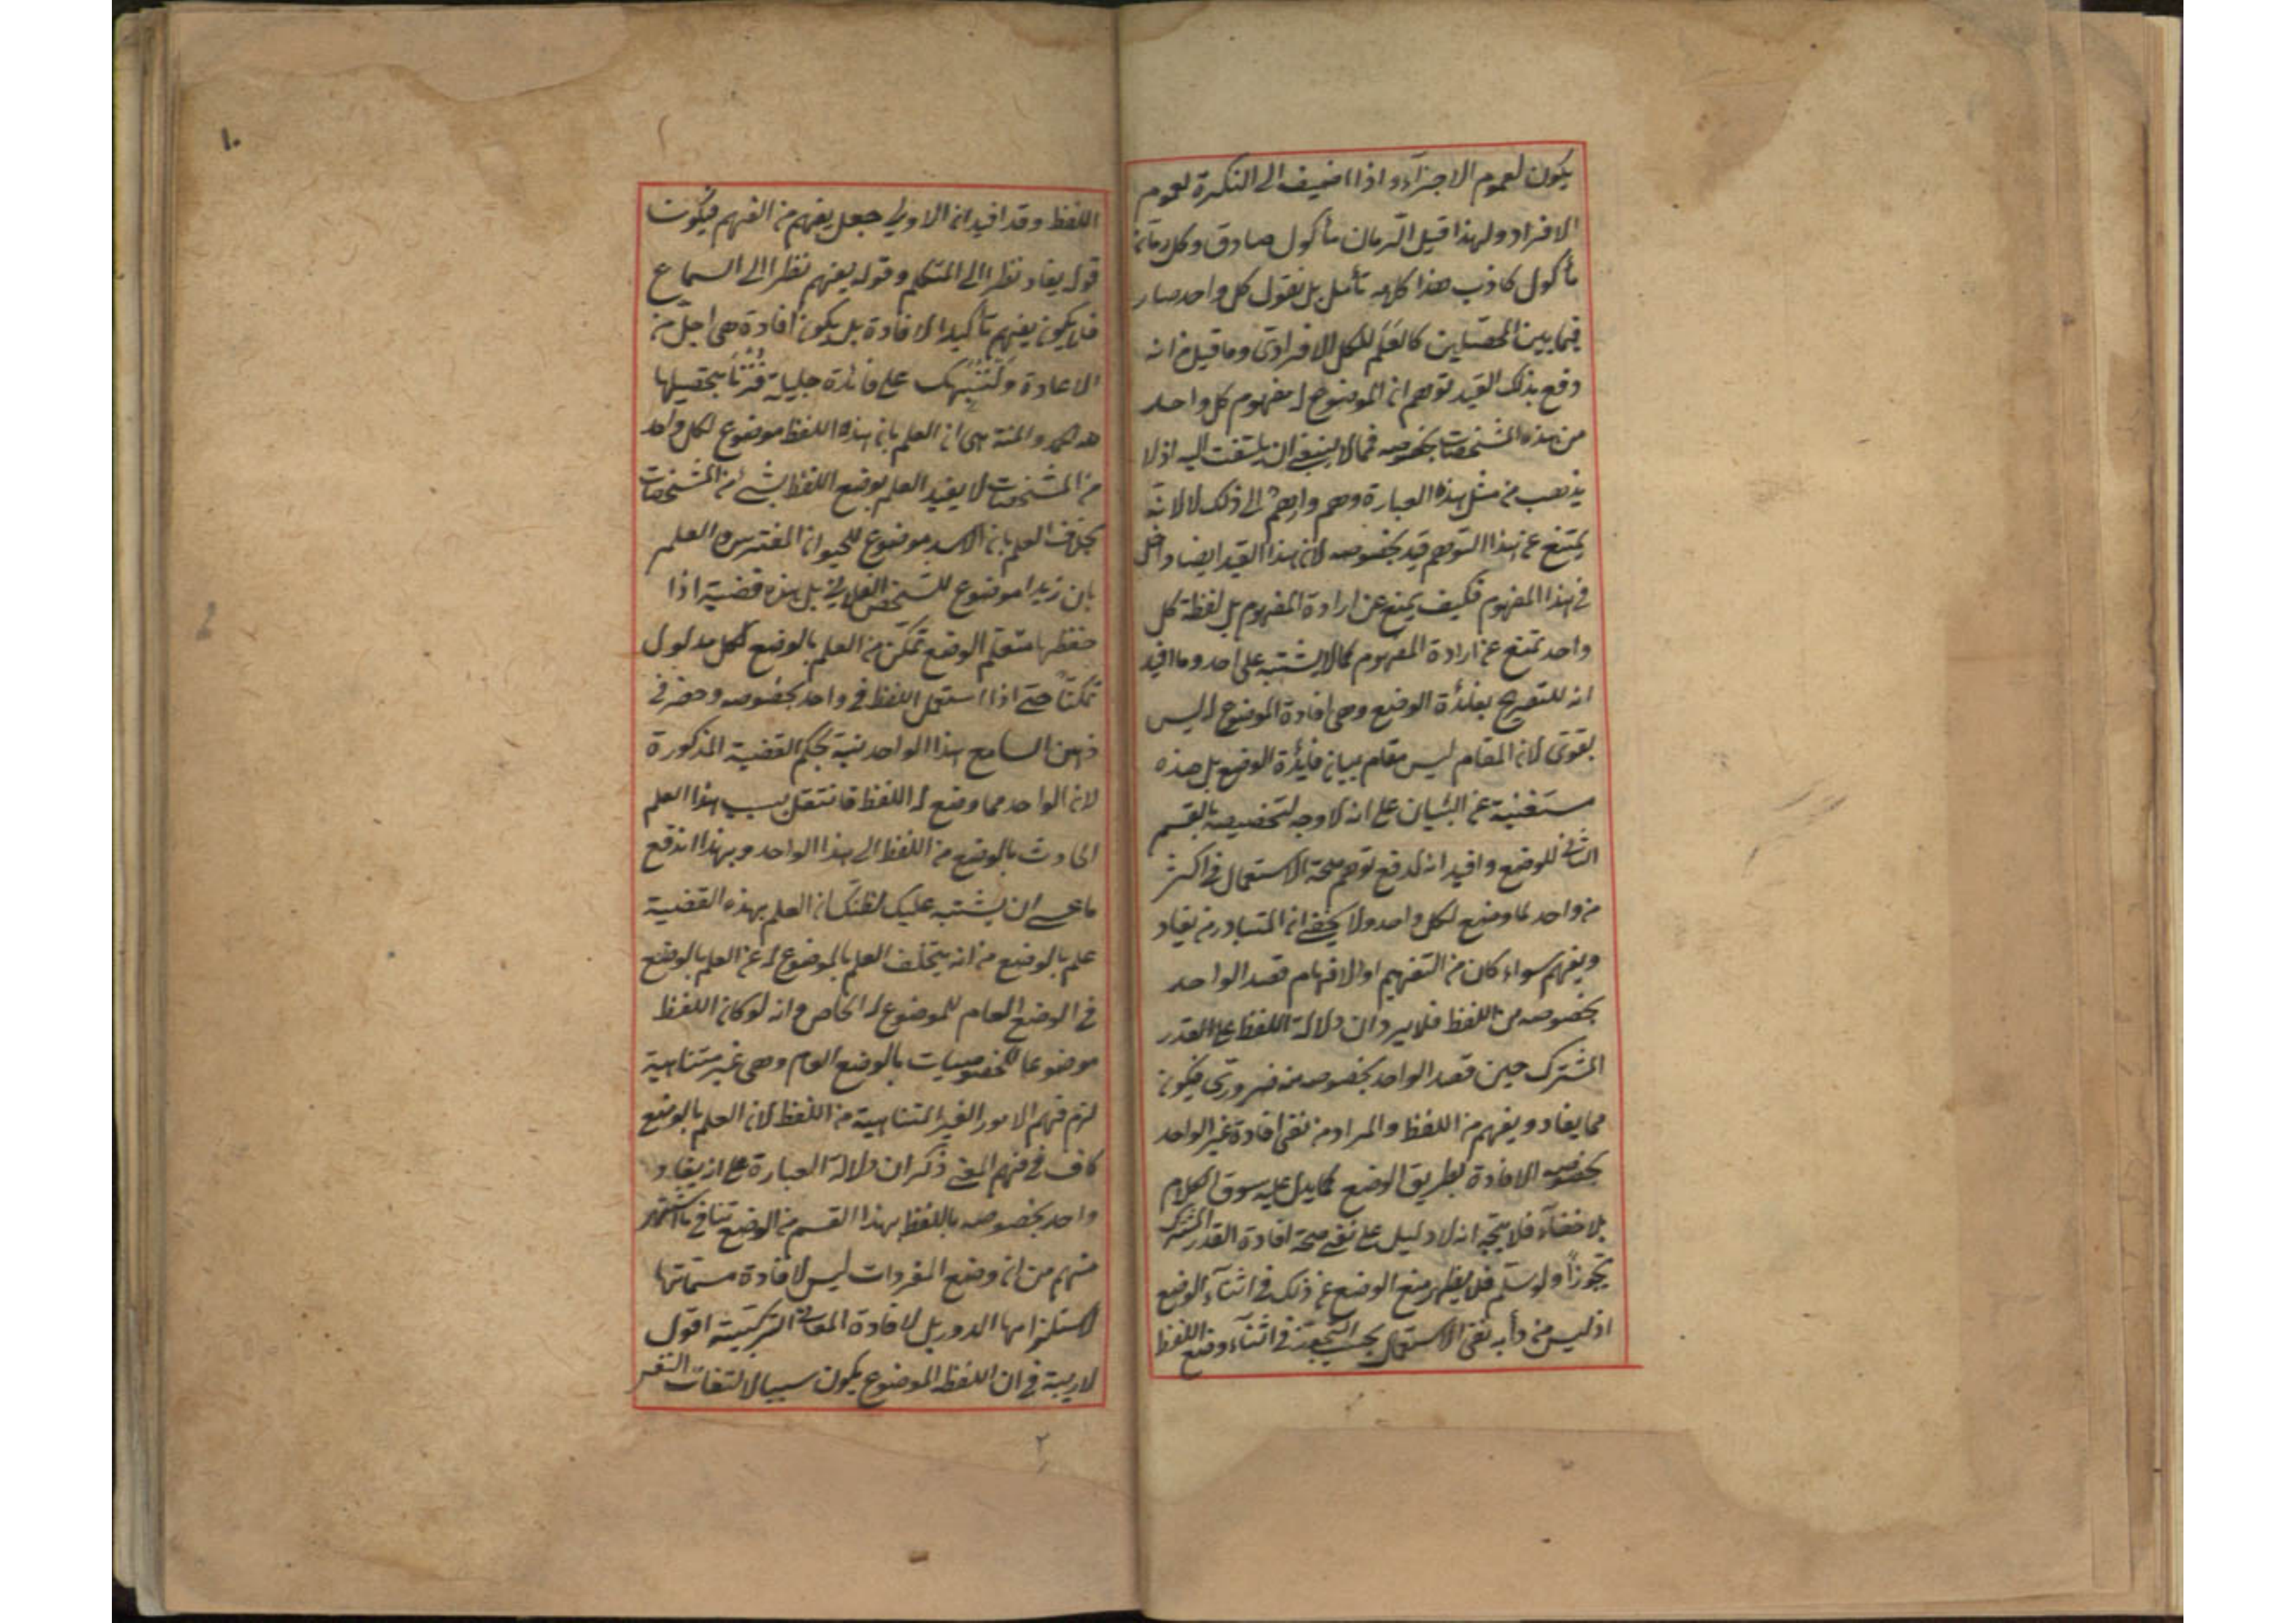 يكون لعموم الاجزآء واذا اضيف الى النكرة لعموم
الافراد ولهذا قيل الرمان مأكول صادق وكل رمان
مأكول كاذب هذا كلامه تأمل بل نقول كل واحد صار
فيما بين المحصلين كالعَلَم للكل الافرادى وما قيل من انه
دفع بذلك القيد توهم ان الموضوع له مفهوم كل واحد
من هذه المشخصات بخصوصه فمما لا ينبغى ان يلتفت اليه اذ لا
يذهب من مثل هذه العبارة وهم واهم الى ذلك لا لانه
يمتنع عن هذا التوهم قيد بخصوصه لان هذا القيد ايضا داخل
فى هذا المفهوم فكيف يمنع عن ارادة المفهوم بل لفظة كل
واحد تمنع عن ارادة المفهوم كما لا يشتبه على احد وما افيد
انه للتصريح بفائدة الوضع وهى افادة الموضوع له ليس
بقوى لان المقام ليس مقام بيان فائدة الوضع بل هذه
مستغنية عن البيان على انه لا وجه لتخصيصه بالقسم
الثانى للوضع وافيد انه لدفع توهم صحة الاستعمال فى اكثر
من واحد لما وضع لكل واحد ولا يخفى ان المتبادر من يفاد
ويفهم سواء كان من التفهيم او الافهام قصد الواحد
بخصوصه من اللفظ فلا يرد ان دلالة اللفظ على القدر
المشترك حين قصد الواحد بخصوصه منه ضرورى فيكون
مما يفاد ويفهم من اللفظ والمراد من نفى افادة غير الواحد
بخصوصه الافادة بطريق الوضع كما يدل عليه سوق الكلام
بلا خفآء فلا يتجه انه لا دليل على نفى صحة افادة القدر المشترك
تجوزاً ولو سلم فلا يظهر منع الوضع عن ذلك فى اثنآء الوضع
اذ ليس من دأبه نفى الاستعمال بحسب التجوز فى اثنآء وضع اللفظ
١٠
اللفظ وقد افيد ان الاولى جعل يفهم من الفهم فيكون
قوله يفاد نظرا الى المتكلم وقوله يفهم نظرا الى السماع
فلا يكون يفهم تأكيدا لافادة بل يكون افادة هى اجل من
الاعادة ولننبهك على فائدة جليلة فُزْنَا بتحصيلها
لله الحمد والمنة هى ان العلم بان هذه اللفظ موضوع لكل واحد
من المشخصات لا يفيد العلم بوضع اللفظ بشئ من المشخصات
بخلاف العلم بان الاسد موضوع للحيوان المفترس والعلم
بان زيدا موضوع للشخص الفلانى بل هذه قضية اذا
حفظها متعلم الوضع تمكن من العلم بالوضع لكل مدلول
تمكناً حتى اذا استعمل اللفظ فى واحد بخصوصه وحضر فى
ذهن السامع هذا الواحد بحكم القضية المذكورة
لان الواحد مما وضع له اللفظ فانتقل بسبب هذا العلم
الحادث بالوضع من اللفظ الى هذا الواحد وبهذا اندفع
ما عسى ان يشتبه عليك لظنك ان العلم بهذه القضية
علم بالوضع من انه يتخلف العلم بالموضوع له عن العلم بالوضع
فى الوضع العام للموضوع له الخاص وانه لو كان اللفظ
موضوعا للخصوصيات بالوضع العام وهى غير متناهية
لزم فهم الامور الغير المتناهية من اللفظ لان العلم بالوضع
كاف فى فهم المعنى ذكر ان دلالة العبارة على ان يفاد
واحد بخصوصه باللفظ بهذا القسم من الوضع تنافى ما اشتهر
منهم من ان وضع المفردات ليس لافادة مسمياتها
لاستلزامها الدور بل لافادة المعانى التركيبية اقول
لا ريبة فى ان اللفظ الموضوع يكون سببا لالتفات النفس
٢